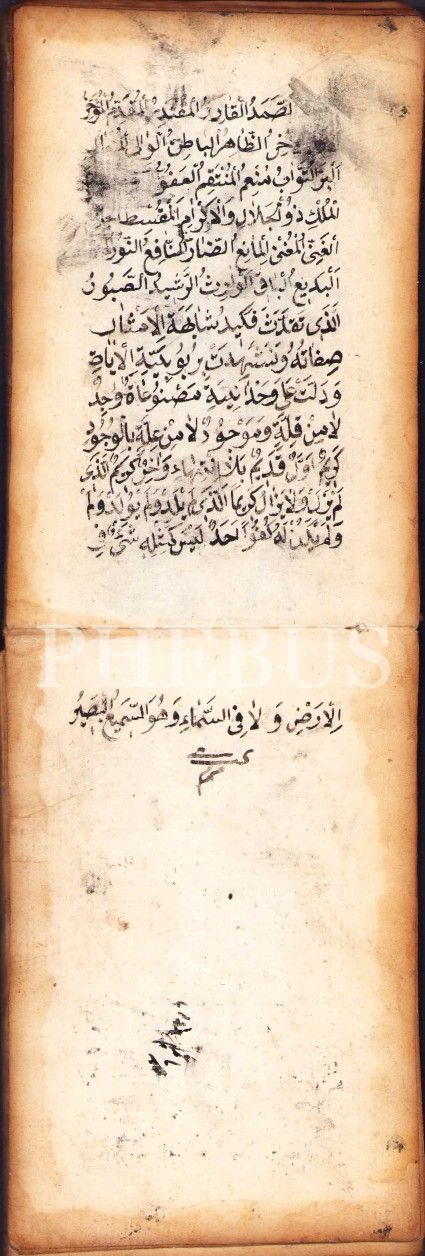 الصَّمَدُ الْقَادِرُ الْمُقْتَدِرُ الْمُقَدِّمُ
الظَّاهِرُ الْبَاطِنُ الْوَالِي
اَلْبَرُّ التَّوَّابُ مُنْعِمُ الْمُنْتَقِمُ الْعَفُوُّ
الْمُلْكِ ذُو الْجَلَالِ وَالْاِكْرَامِ الْمُقْسِطُ
الْغَنِيُّ الْمُغْنِي الْمَانِعُ الضَّارُّ النَّافِعُ النُّورُ
اَلْبَدِيعُ الْبَاقِي الْوَارِثُ الرَّشِيدُ الصَّبُورُ
الَّذِي تَقَدَّسَتْ الْاَمْثَالِ
صِفَاتُهُ وَ
وَدَلَّتْ عَلٰى وَحْدَانِيَّةِ مَصْنُوعَاتُهُ وَاحِدٌ
لَا مِنْ قِلَّةٍ وَمَوْجُودٌ لَا مِنْ عِلَّةٍ بِالْوُجُودِ
كَرِيمٌ اَوَّلٌ قَدِيمٌ بِلَا كَرِيمٌ الَّذِي
لَمْ يَزَلْ وَلَا يَزَالُ كَرِيمًا الَّذِي لَمْ يَلِدْ وَلَمْ يُولَدْ
وَلَمْ يَكُنْ لَهُ كُفُوًا اَحَدٌ لَيْسَ كَمِثْلِهِ شَيْءٌ فِي
PHEBUS
الْاَرْضِ وَلَا فِي السَّمَاءِ وَهُوَ السَّمِيعُ الْبَصِيرُ